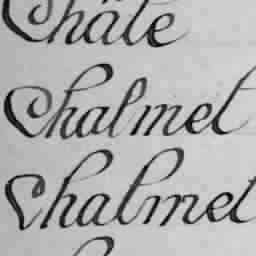 Châte
Chalmet
Chalmet